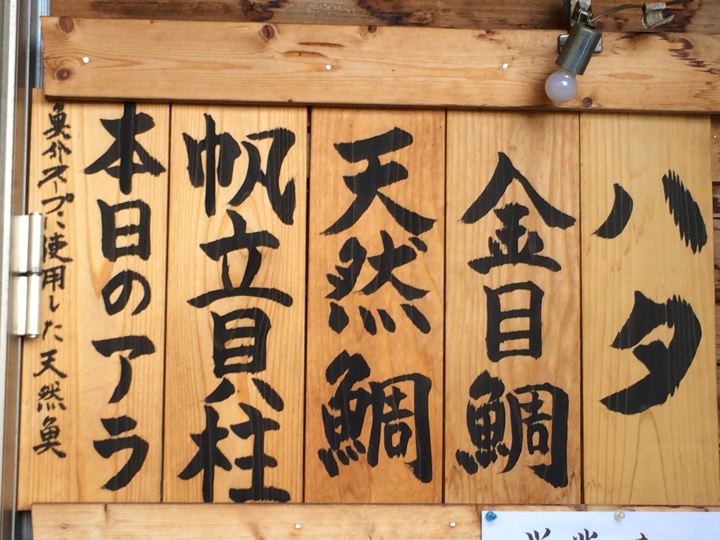 ハタ
金目鯛
天然鯛
帆立貝柱
本日のアラ
魚介スープに使用した天然魚